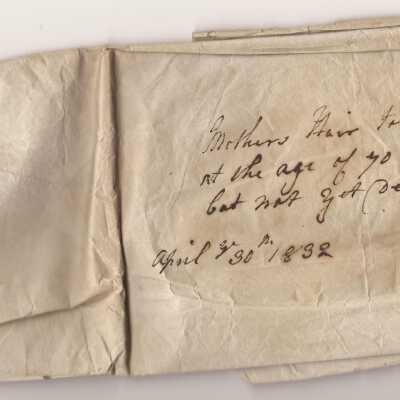 Mothers Hair ta
at the age of 70
but not yet De
April ye 30th 1832